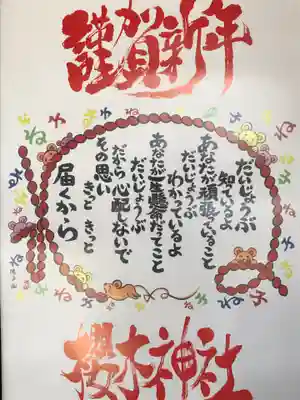 謹賀新年
だいじょうぶ
知ているよ
あなたが頑張ていること
だいじょうぶ
わかっているよ
あなたが一生懸命だてこと
だいじょうぶ
だから心配しないで
その思い
きっと きっと
届くから
櫻木神社